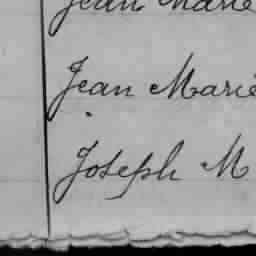 Jean Marie
Jean Marie
Joseph M